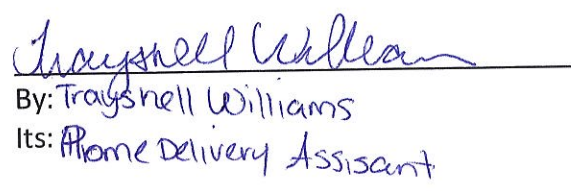 Trayshell Williams
By: Trayshell Williams
Its: Home Delivery Assisant